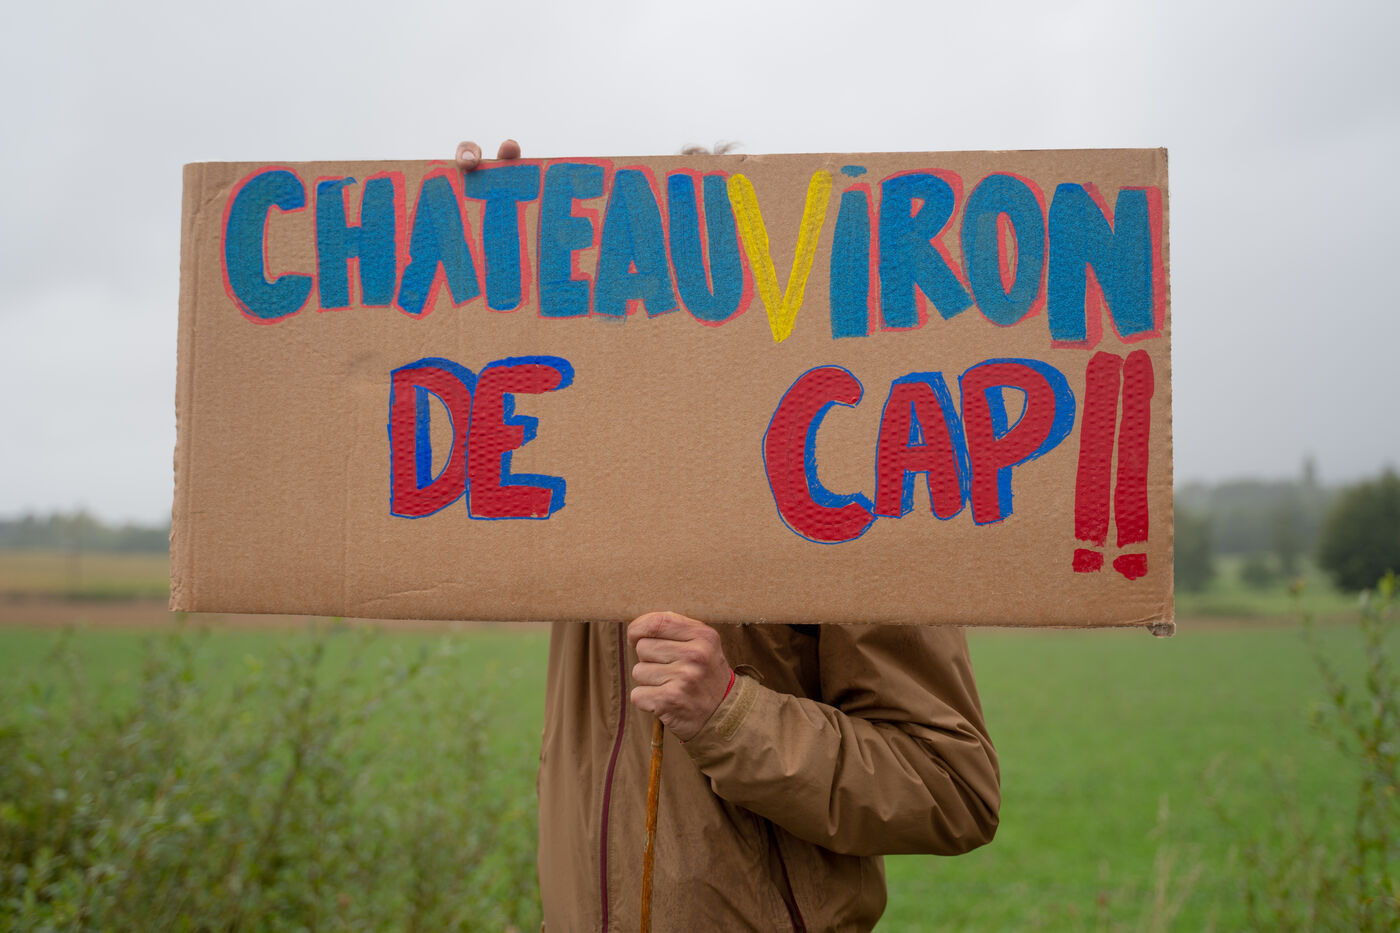 CHATEAUViRON
DE CAP!!